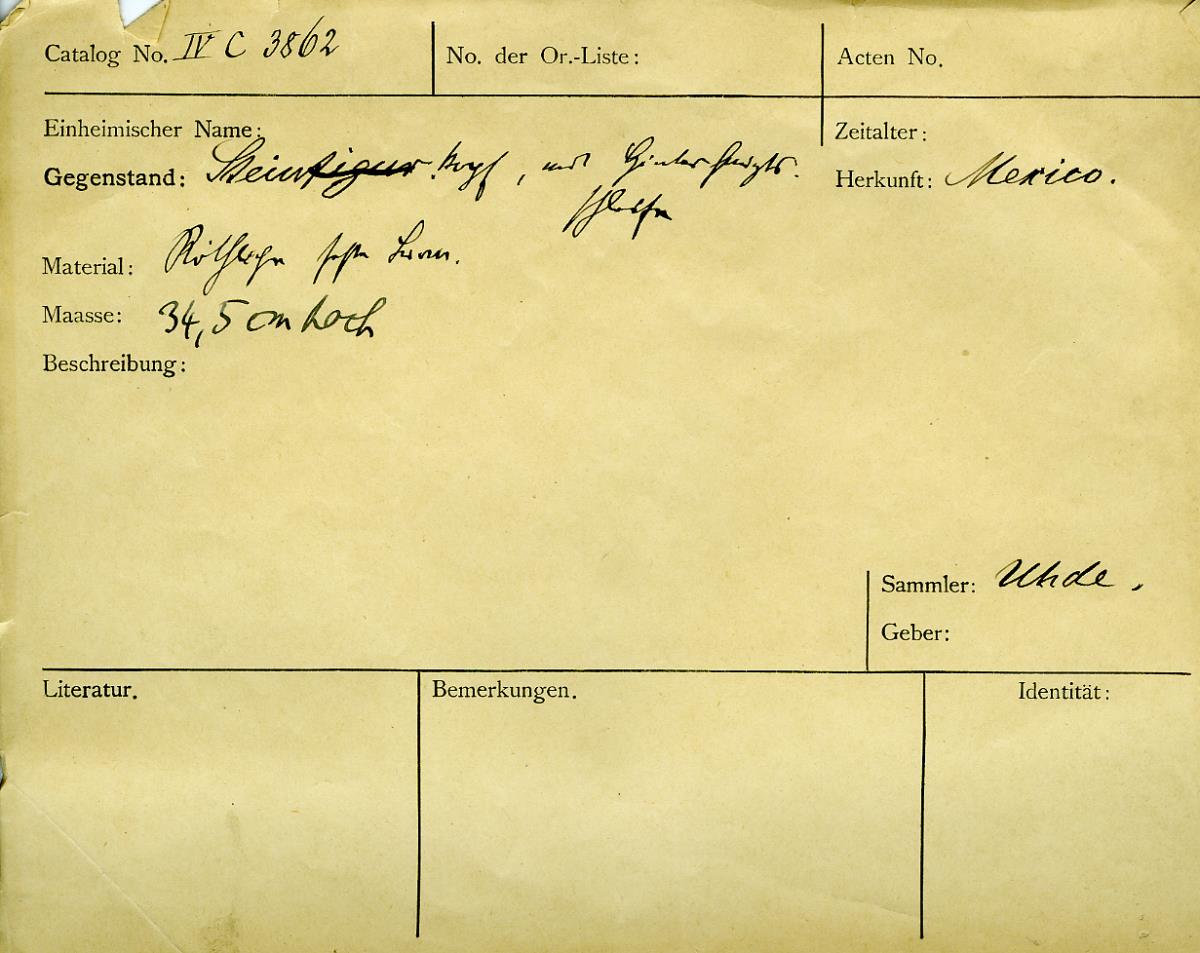 Catalog No. IV C 3862
No. der Or.-Liste:
Acten No.
Einheimischer Name:
Zeitalter:
Gegenstand: Steinfigur Kopf, mit
Herkunft: Mexico.
Material: Röthliche
Maasse: 34,5 cm hoch
Beschreibung:
Sammler: Uhde.
Geber:
Literatur.
Bemerkungen.
Identität: